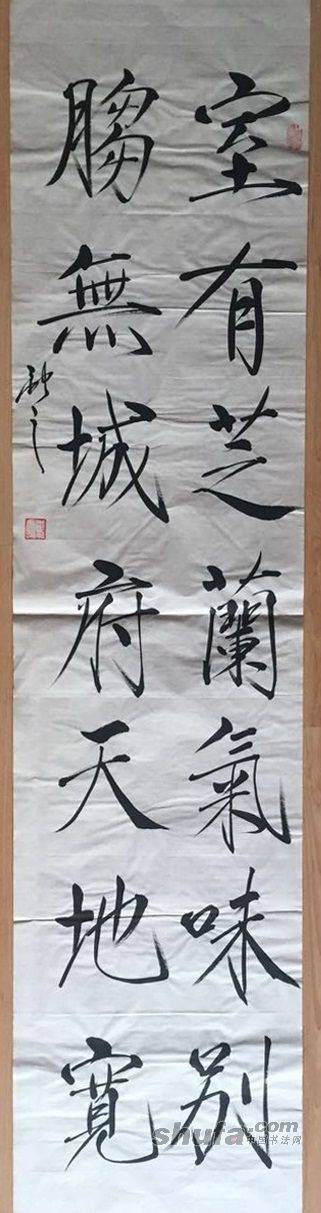 室有芝蘭氣味別
胸無城府天地寬
shufa.com
中国书法网